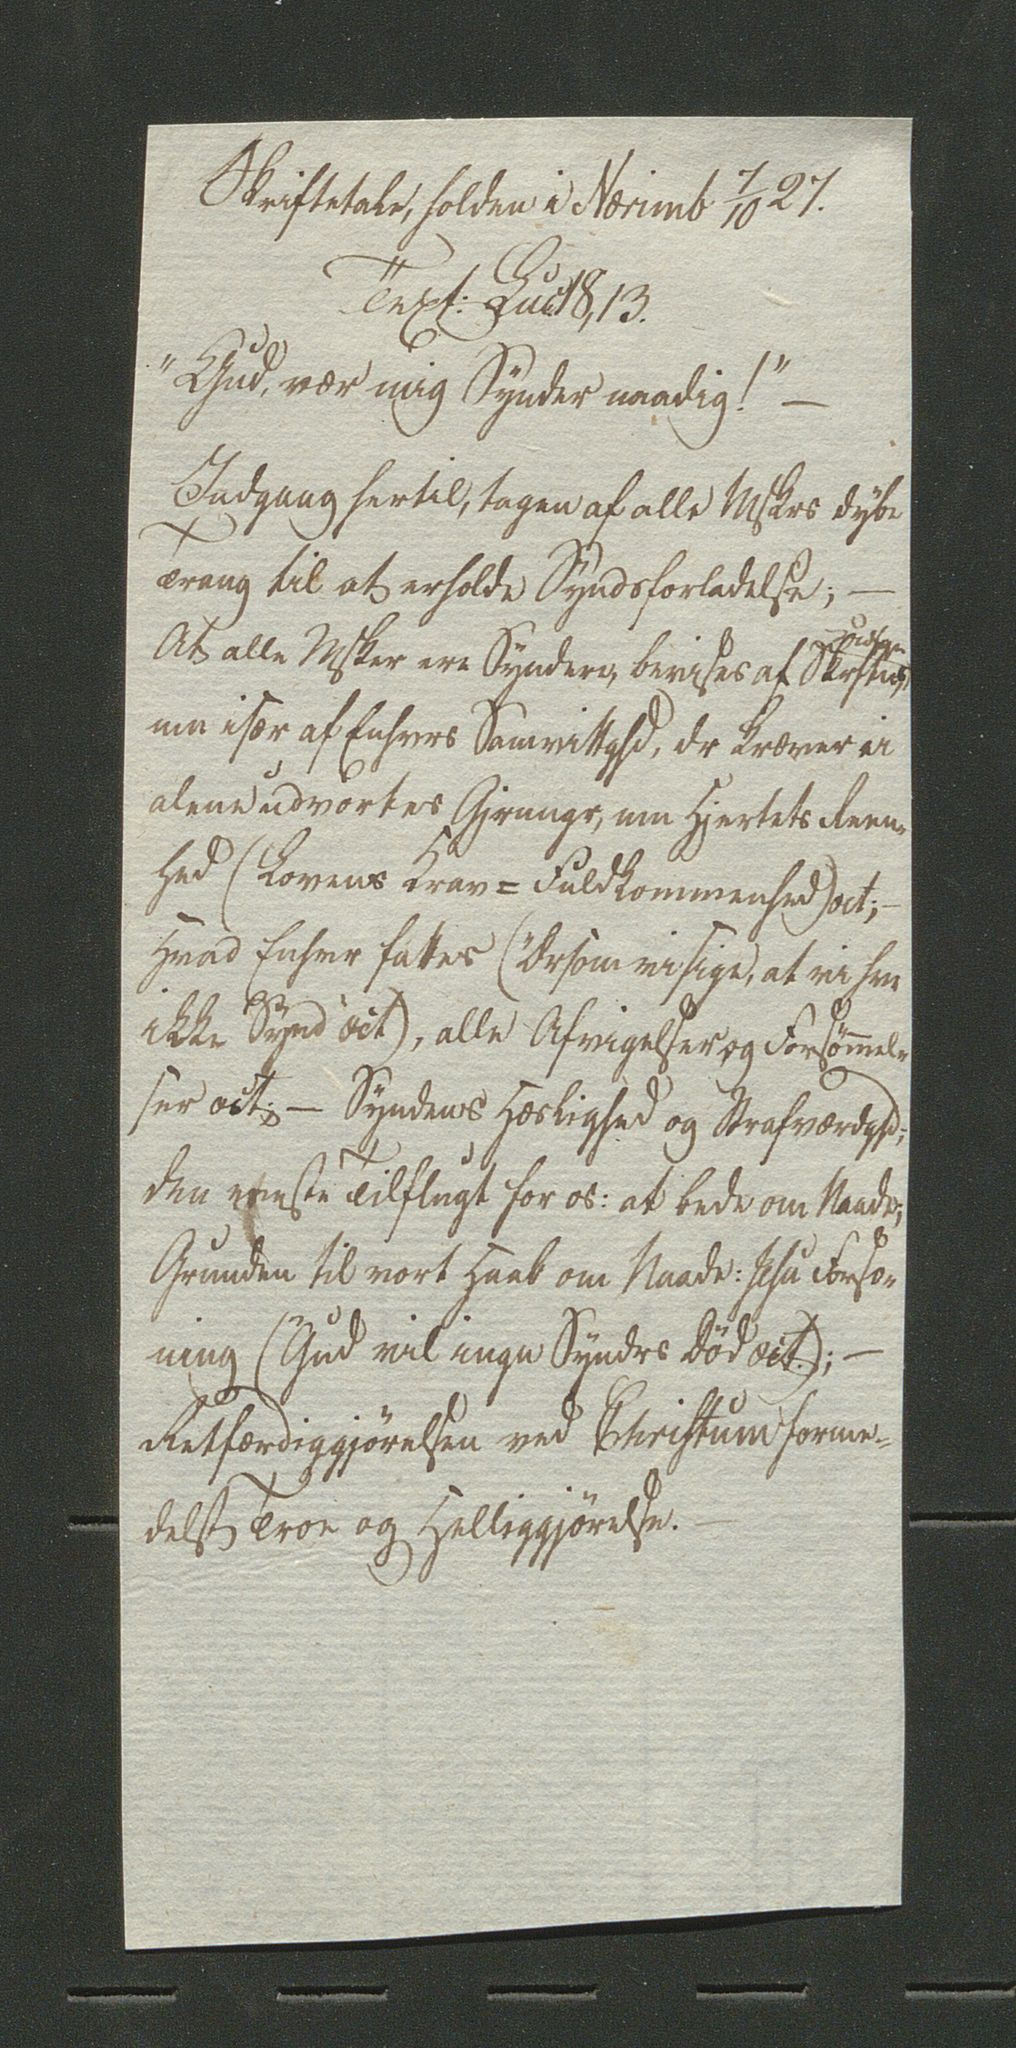 Skriftetale, holden i Nærimb 7/10 27.
Text: Luc 18, 13.
"Gud, vær mig Synder naadig!" —
Indgang hertil, tagen af alle Mskrs dybe
Trang til at erholde Syndsforladelse; —
At alle Msker ere Syndere, bevises af Skrftens,
mn især af Enhvers Samvittghd, dr kræver ei
alene udvortes Gjrnngr, mn Hjertets Reen-
hed (Lovens Krav = Fuldkommenhed) oct; —
Hvad Enhver fattes ("Drsom vi sige, at vi hve
ikke Synd" oct), alle Afvigelser og Forsømmel-
ser oct; — Syndens Hæslighed og Strafværdghd;
den eneste Tilflugt for os: at bede om Naade;
Grunden til vort Haab om Naade: Jesu Forso-
ning ("Gud vil ingn Syndrs Død oct.); —
Retfærdiggjørelsen ved Christum forme-
delst Troe og Helliggjørelse. —